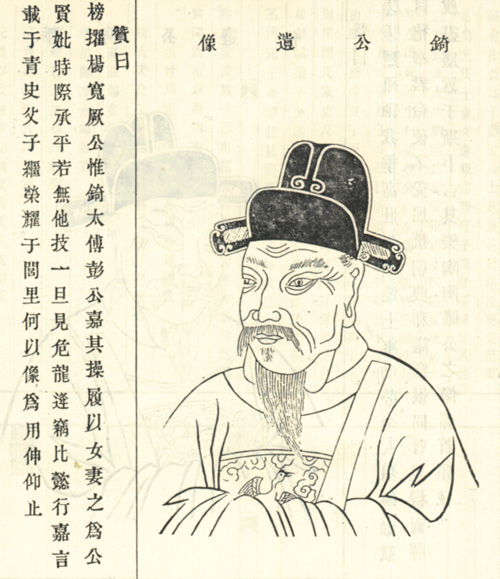 錡公遺像
贊曰
榜擢楊寬厥公惟錡太傅彭公嘉其操履以女妻之爲公
賢妣時際承平若無他技一旦見危龍逢竊比懿行嘉言
載于青史父子繼榮耀于閭里何以像爲用伸仰止